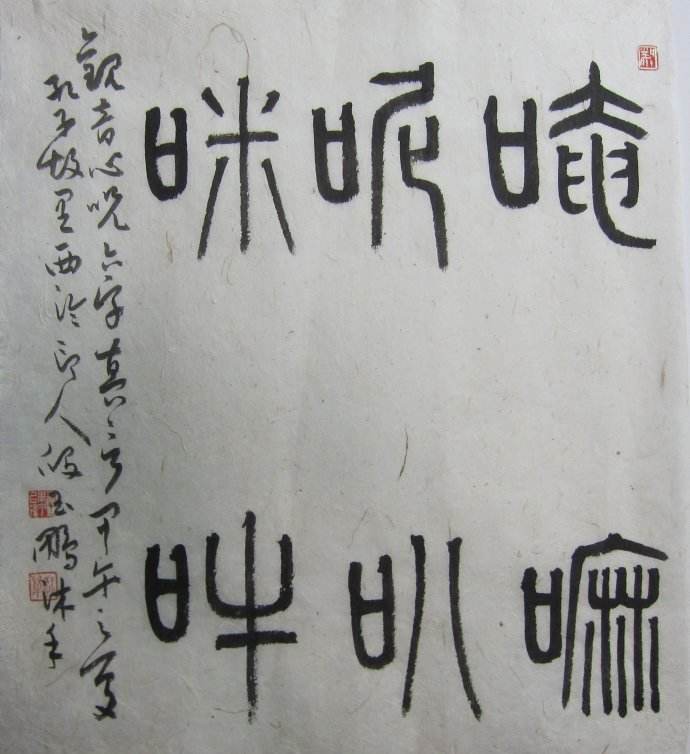 唵嘛
呢叭
咪吽
觀音心呪六字真言甲午之夏
孔子故里西泠印人段玉鵬沐手